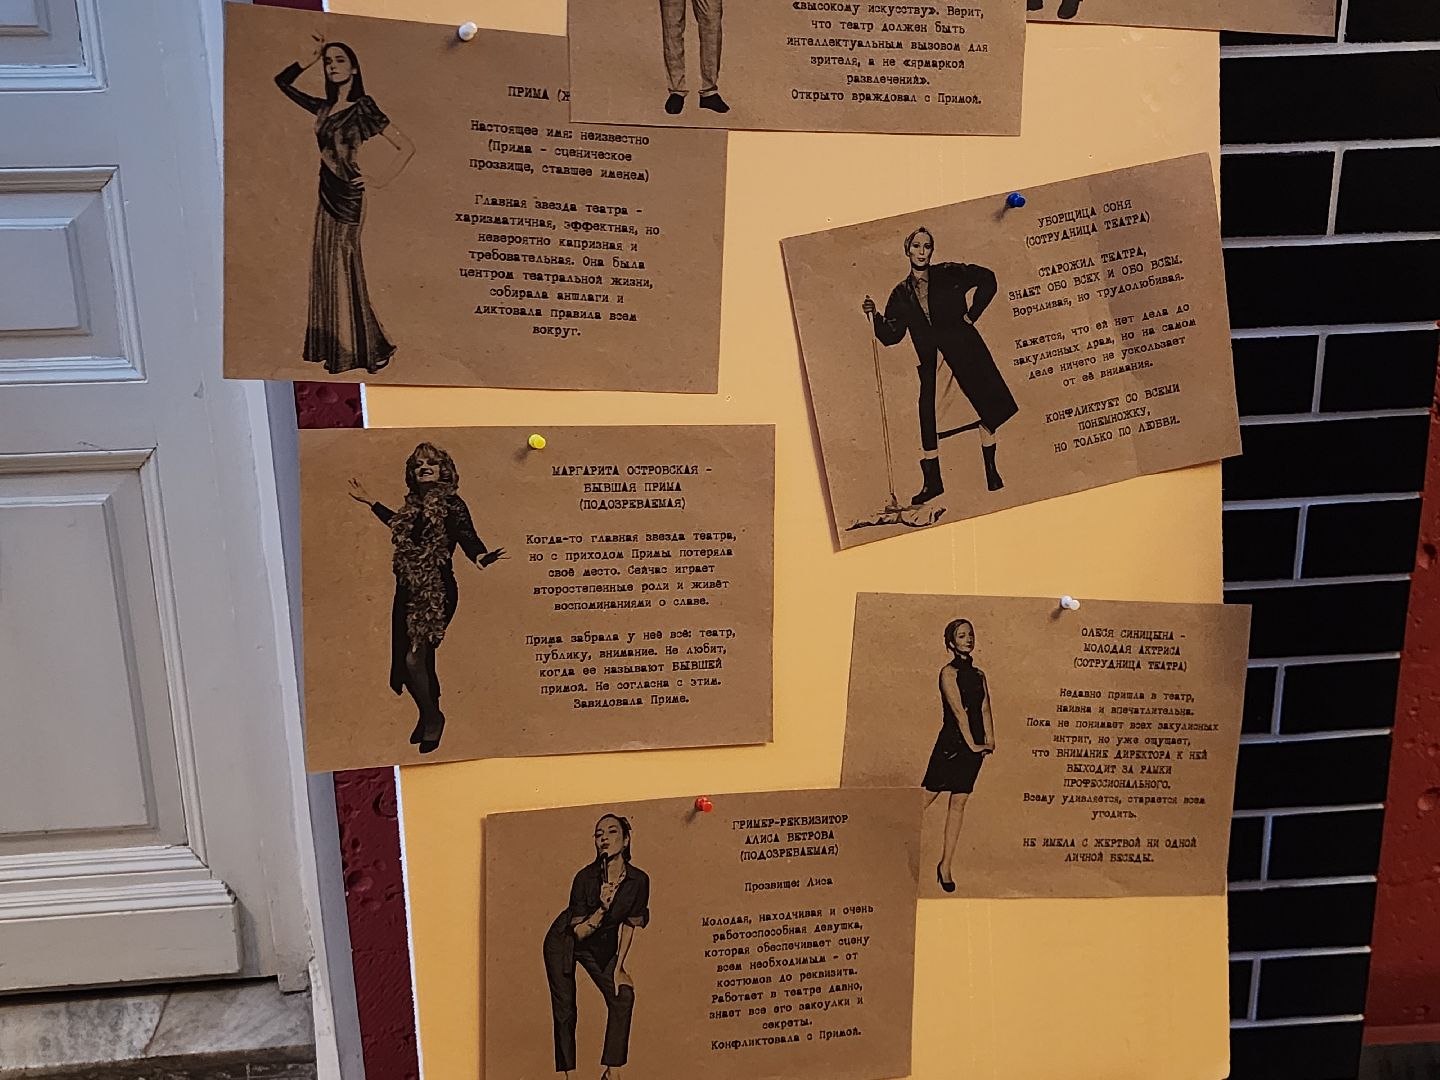 «высокому искусству». Верит,
что театр должен быть
интеллектуальным вызовом для
зрителя, а не «ярмаркой
развлечений».
Открыто враждовал с Примой.
ПРИМА (Ж
Настоящее имя: неизвестно
(Прима – сценическое
прозвище, ставшее именем)
Главная звезда театра –
харизматичная, эффектная, но
невероятно капризная и
требовательная. Она была
центром театральной жизни,
собирала аншлаги и
диктовала правила всем
вокруг.
УБОРЩИЦА СОНЯ
(СОТРУДНИЦА ТЕАТРА)
СТАРОЖИЛ ТЕАТРА,
ЗНАЕТ ОБО ВСЕХ И ОБО ВСЕМ.
Ворчливая, но трудолюбивая.
Кажется, что ей нет дела до
закулисных драм, но на самом
деле ничего не ускользает
от её внимания.
КОНФЛИКТУЕТ СО ВСЕМИ
ПОНЕМНОЖКУ,
НО ТОЛЬКО ПО ЛЮБВИ.
МАРГАРИТА ОСТРОВСКАЯ –
БЫВШАЯ ПРИМА
(ПОДОЗРЕВАЕМАЯ)
Когда-то главная звезда театра,
но с приходом Примы потеряла
своё место. Сейчас играет
второстепенные роли и живёт
воспоминаниями о славе.
Прима забрала у неё всё: театр,
публику, внимание. Не любит,
когда ее называют БЫВШЕЙ
примой. Не согласна с этим.
Завидовала Приме.
ОЛЕСЯ СИНИЦЫНА –
МОЛОДАЯ АКТРИСА
(СОТРУДНИЦА ТЕАТРА)
Недавно пришла в театр,
наивна и впечатлительна.
Пока не понимает всех закулисных
интриг, но уже ощущает,
что ВНИМАНИЕ ДИРЕКТОРА К НЕЙ
ВЫХОДИТ ЗА РАМКИ
ПРОФЕССИОНАЛЬНОГО.
Всему удивляется, старается всем
угодить.
НЕ ИМЕЛА С ЖЕРТВОЙ НИ ОДНОЙ
ЛИЧНОЙ БЕСЕДЫ.
ГРИМЕР-РЕКВИЗИТОР
АЛИСА ВЕТРОВА
(ПОДОЗРЕВАЕМАЯ)
Прозвище: Лиса
Молодая, находчивая и очень
работоспособная девушка,
которая обеспечивает сцену
всем необходимым – от
костюмов до реквизита.
Работает в театре давно,
знает все его закоулки и
секреты.
Конфликтовала с Примой.